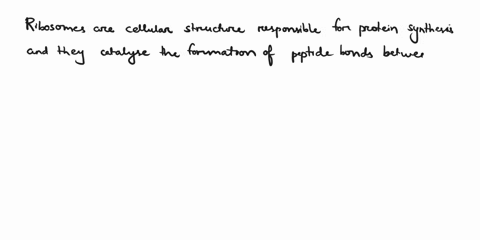 Ribosomes are cellular structure responsible for protein synthesis
and they catalyse the formation of peptide bonds betwee